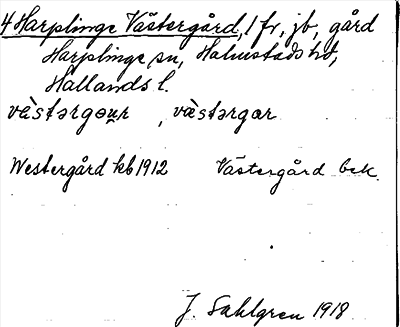 4 Harplinge Västergård, 1 fr, jb, gård
Harplinge sn, Halmstads hd,
Hallands l.
vèstərgəur, vèstərgɑr
Westergård kb 1912 Västergård bek.
J. Sahlgren 1918